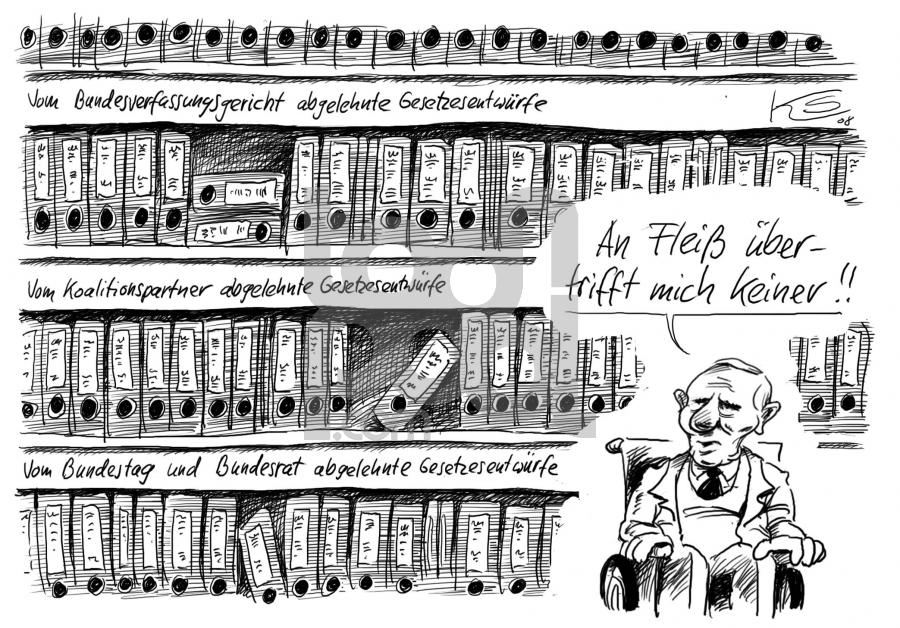 Vom Bundesverfassungsgericht abgelehnte Gesetzesentwürfe
KS
08
An Fleiß über-
trifft mich keiner!!
Vom Koalitionspartner abgelehnte Gesetzesentwürfe
Vom Bundestag und Bundesrat abgelehnte Gesetzesentwürfe